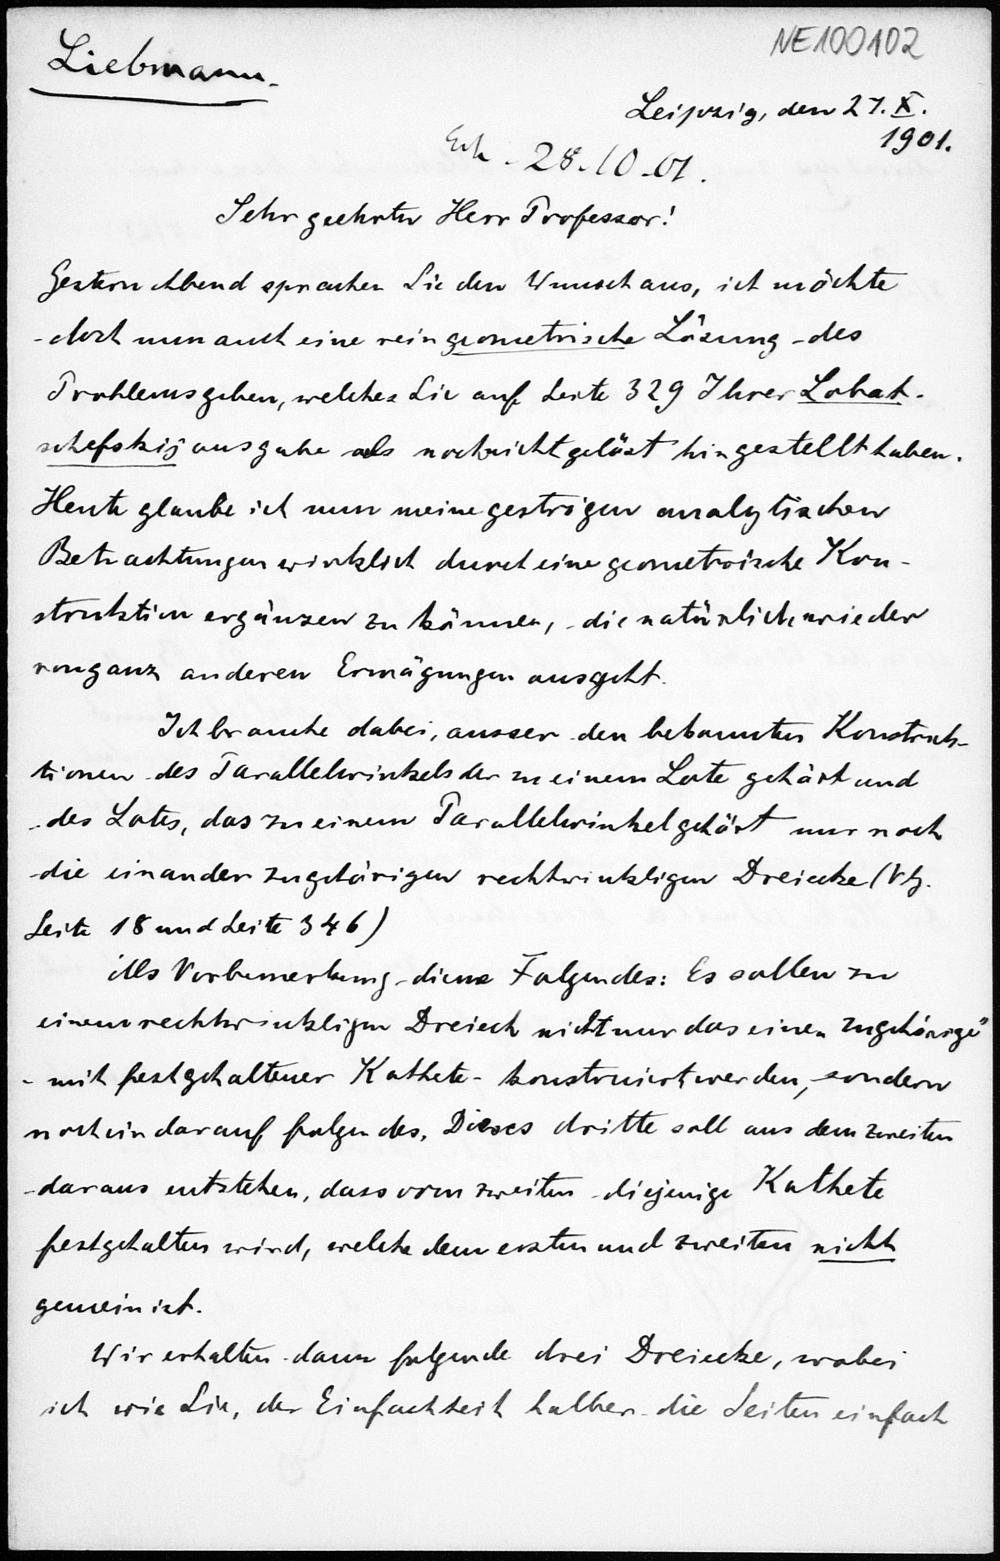 NE100102
Liebmann.
Leipzig, den 27. X.
1901.
Erh. 28.10.01.
Sehr geehrter Herr Professor!
Gestern Abend sprachen Sie den Wunsch aus, ich möchte
doch nun auch eine rein geometrische Lösung des
Problems geben, welches Sie auf Seite 329 Ihrer Lobat-
schefskij ausgabe als noch nicht gelöst hingestellt haben.
Heute glaube ich nun meine gestrigen analytischen
Betrachtungen wirklich durch eine geometrische Kon-
struktion ergänzen zu können, die natürlich wieder
von ganz anderen Erwägungen ausgeht.
Ich brauche dabei, ausser den bekannten Konstruk-
tionen des Parallelwinkels der zu einem Lote gehört und
des Lotes, das zu einem Parallelwinkel gehört nur noch
die einander zugehörigen rechtwinkligen Dreiecke (Vg.
Seite 18 und Seite 346)
Als Vorbemerkung diene Folgendes: Es sollen zu
einem rechtwinkligen Dreieck nicht nur das einen zugehörige"
- mit festgehaltener Kathete - konstruiert werden, sondern
noch ein darauf folgendes. Dieses dritte soll aus dem zweiten
daraus entstehen, dass vom zweiten diejenige Kathete
festgehalten wird, welche dem ersten und zweiten nicht
gemein ist.
Wir erhalten dann folgende drei Dreiecke, wobei
ich wie Sie, der Einfachheit halber die Seiten einfach